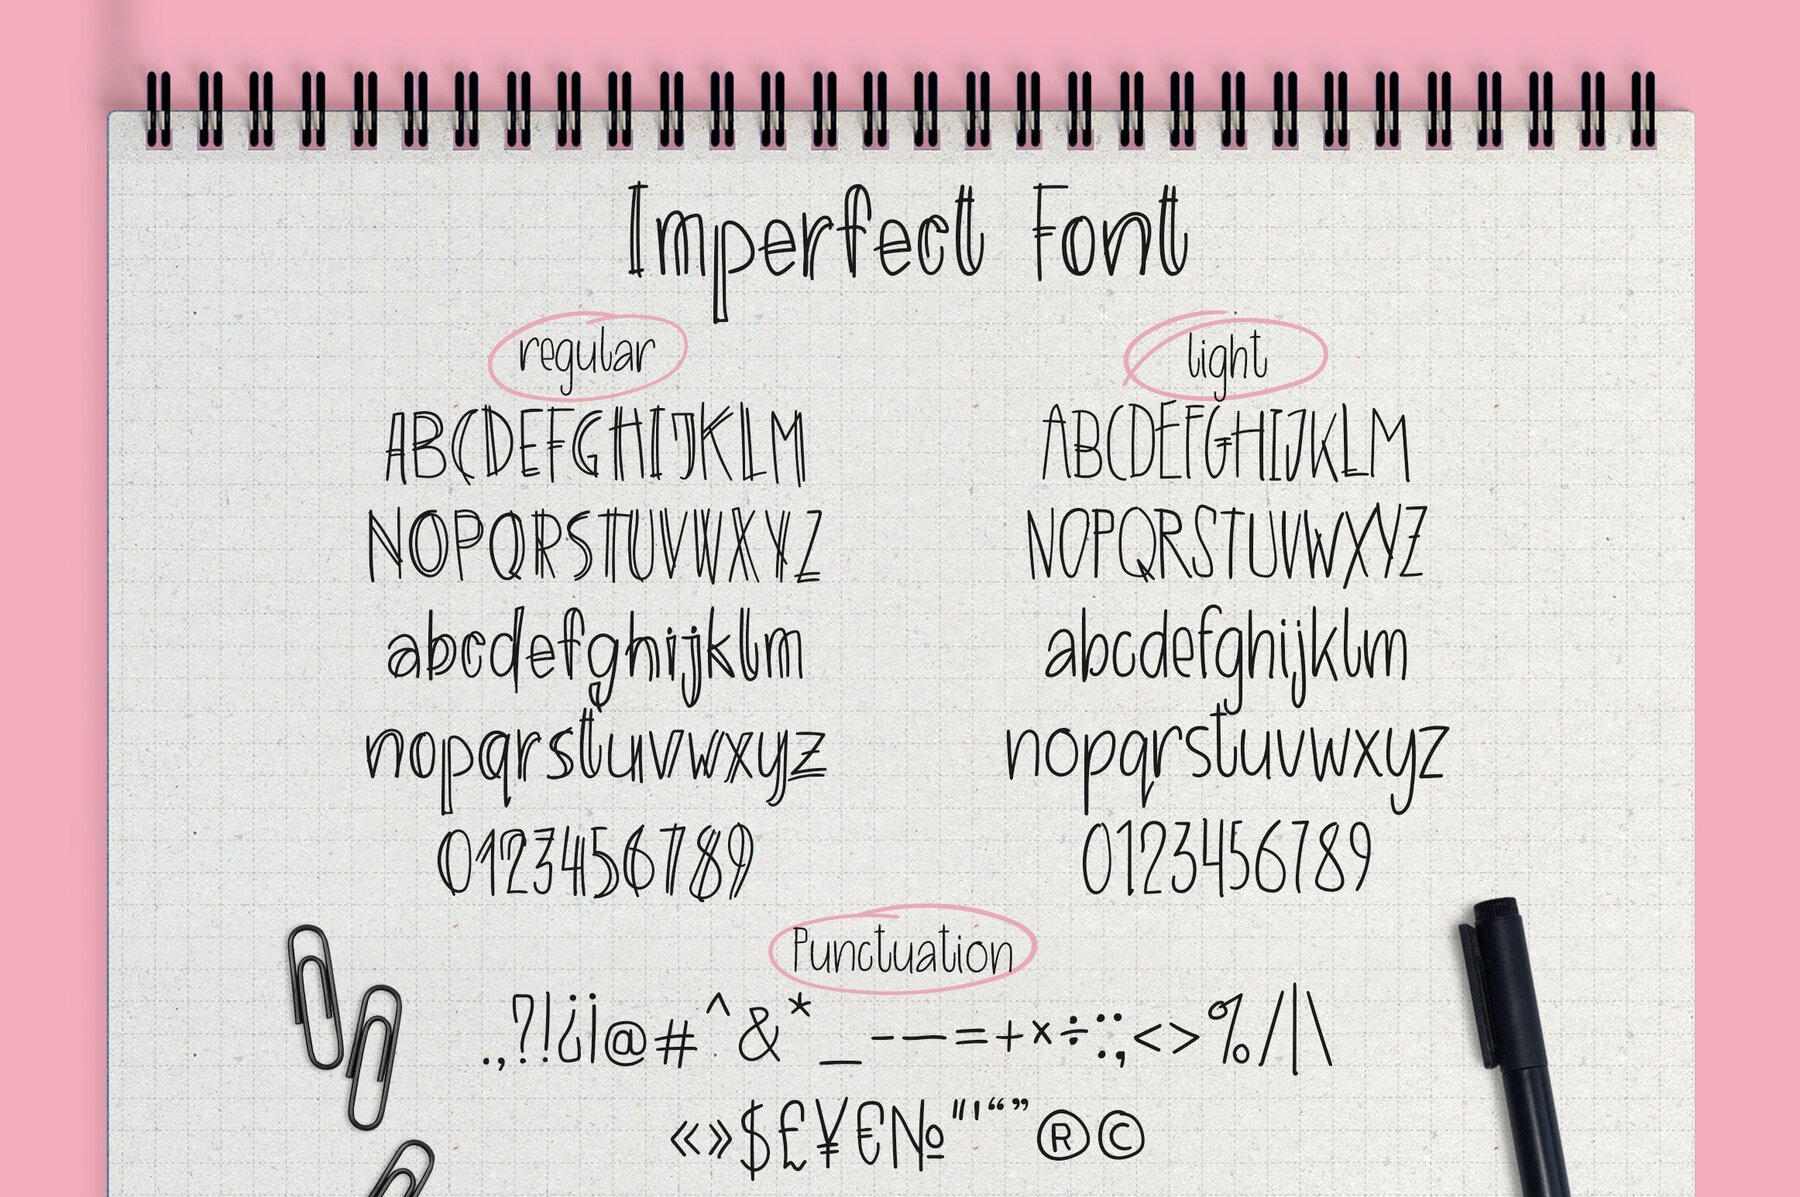 Imperfect Font
regular
ABCDEFGHIJKLM
NOPQRSTUVWXYZ
abcdefghijklm
nopqrstuvwxyz
0123456789
light
ABCDEFGHIJKLM
NOPQRSTUVWXYZ
abcdefghijklm
nopqrstuvwxyz
0123456789
Punctuation
.,?!¿¡@#^&*_-—=+×÷:;<>%/|\
«»$£¥€№"'“”®©